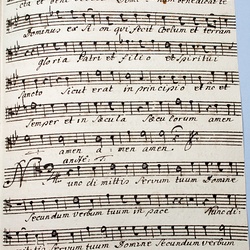 Dominus ex Si: on qui fecit Coelum et terram
gloria Patri et filio et Spiritui
Sancto Sicut erat in principio et
Semper et in Saecula Saeculorum amen
amen a men amen.
unc di mittis Servum tuum Domine
Secundum verbum tuum in pace
Servum tuum Domine Secundum verbum